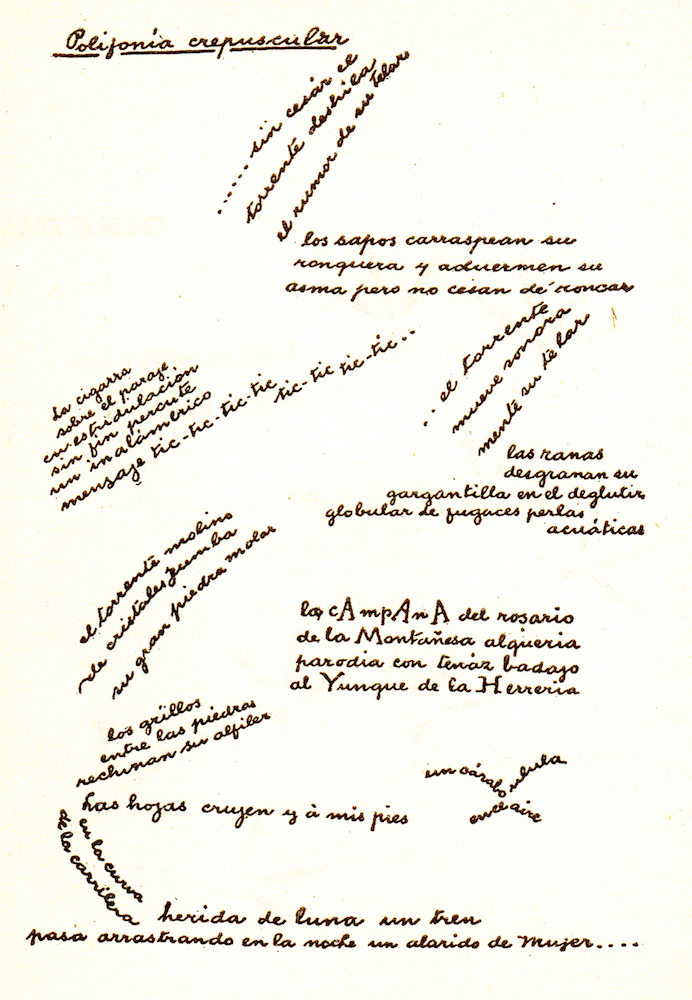 Polifonía crepuscular
...... sin cesár el
torrente deshila
el rumor de su telar
los sapos carraspean su
ronquera y aduermen su
asma pero no cesan de roncar
.. el torrente
mueve sonora
mente su telar
la cigarra
sobre el paraje
en estridulación
sin fin percute
un inalámbrico
mensaje tic-tic-tic-tic tic-tic tic-tic..
las ranas
desgranan su
gargantilla en el deglutir
globular de fugaces perlas
acuáticas
el torrente molino
de cristales zumba
su gran piedra molar
la cAmpAnA del rosario
de la Montañesa alqueria
parodia con tenáz badajo
al Yunque de la Herreria
los grillos
entre las piedras
rechinan su alfiler
un cárabo ulula
en el aire
Las hojas crujen y à mis pies
en la curva
de la carrilera
herida de luna un tren
pasa arrastrando en la noche un alarido de Mujer....